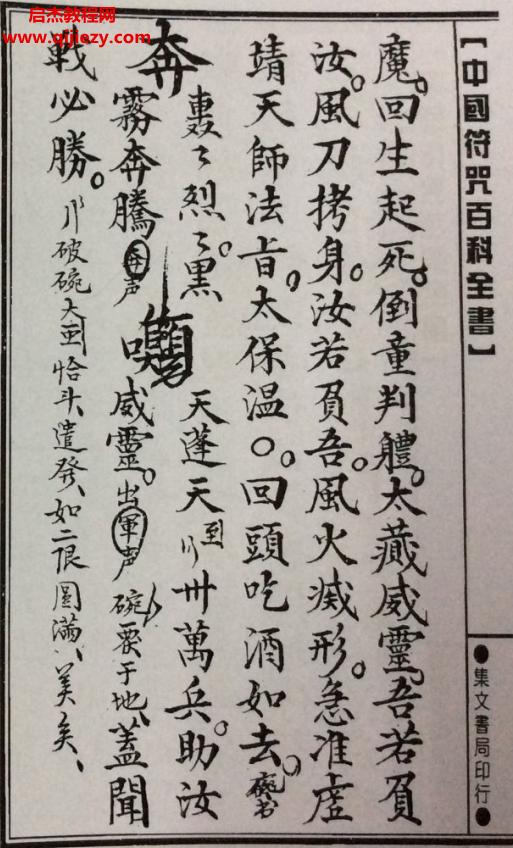 启杰教程网
www.qijiezy.com
【中國符咒百科全書】
●集文書局印行●
魔。回生起死。倒童判體。太藏威靈。吾若負
汝。風刀拷身。汝若負吾。風火滅形。急准虛
靖天師法旨。太保温〇。回頭吃酒如去。
轟々烈々。黑 天蓬天 卅萬兵。助汝
奔 霧奔騰 奔声 威靈。出軍声 碗 于地、蓋聞
戰必勝。 破碗大 恰斗、遣發、如二限圓滿、美矣、